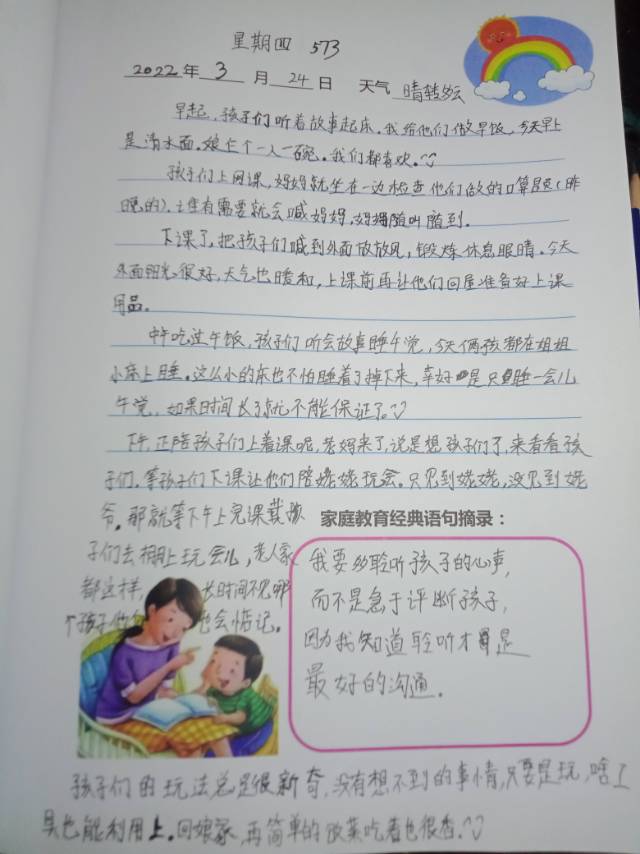 星期四 573
2022年 3 月 24 日 天气 晴转多云
早起,孩子们听着故事起床,我给他们做早饭,今天早上
是清水面,娘仨个一人一碗。我们都喜欢。
孩子们上网课,妈妈就坐在一边检查他们做的口算题(昨
晚的),土豆有需要就会喊妈妈,妈妈随叫随到。
下课了,把孩子们喊到外面放放风,锻炼休息眼睛。今天
外面阳光很好,天气也暖和,上课前再让他们回屋准备好上课
用品。
中午吃过午饭,孩子们听会故事睡午觉,今天俩孩都在姐姐
小床上睡。这么小的床也不怕睡着了掉下来,幸好是只睡一会儿
午觉,如果时间长了就不能保证了。
下午,正陪孩子们上着课呢,老妈来了,说是想孩子们了,来看看孩
子们,等孩子们下课让他们陪姥姥玩会。只见到姥姥,没见到姥
爷。那就等下午上完课载孩
子们去棚上玩会儿,老人家
都这样,
长时间不见哪
个孩子
也会惦记。
家庭教育经典语句摘录:
我要多聆听孩子的心事,
而不是急于评断孩子,
因为我知道聆听才是
最好的沟通。
孩子们的玩法总是很新奇,没有想不到的事情,只要是玩,啥工
具也能利用上。回娘家,再简单的饭菜吃着也很香。